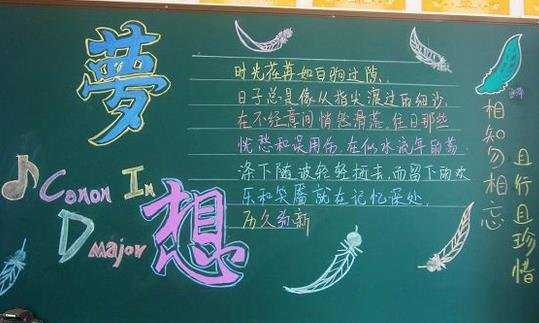 夢想
Canon In
D major
时光荏苒如白驹过隙，
日子总是像从指尖滚过的细沙，
在不经意间悄然滑落。往日那些
忧愁和误用伤，在似水流年的荡
涤下随波轻轻逝去，而留下的欢
乐和笑靥就在记忆深处，
历久弥新
相知勿相忘
且行且珍惜